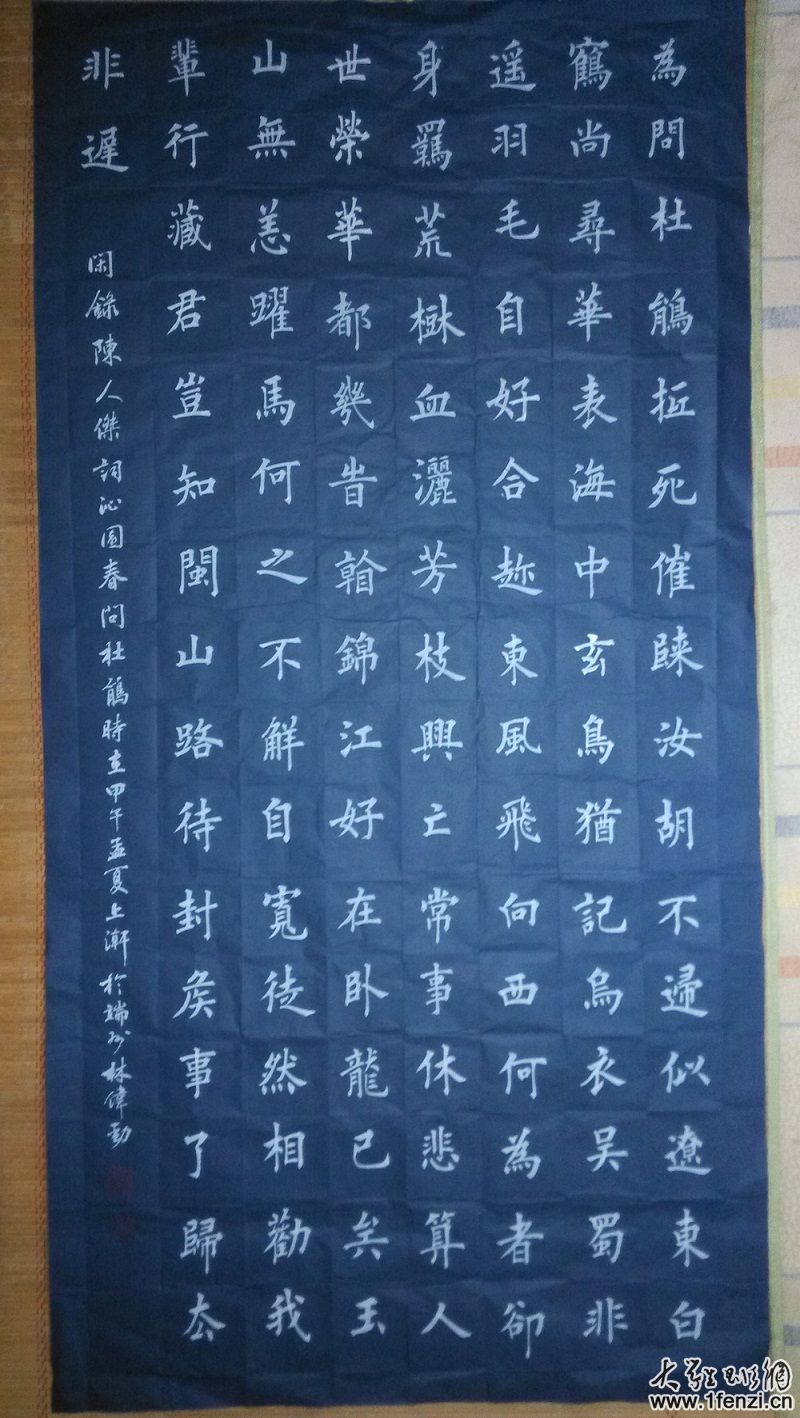 為問杜鵑抵死催歸汝胡不歸似遼東白
鶴尚尋華表海中玄鳥猶記烏衣吴蜀非
遥羽毛自好合趂東風飛向西何為者卻
身羈荒樹血灑芳枝興亡常事休悲算人
世榮華都幾時看錦江好在卧龍已矣玉
山無恙躍馬何之不解自寬徒然相勸我
輩行藏君豈知閩山路待封侯事了歸去
非遲
閑錄陳人傑詞沁園春问杜鵑時在甲午孟夏上澣於端州林偉勤
www.1fenzi.cn